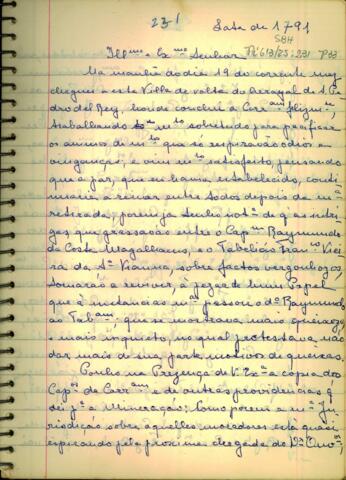 231
Data de 1791
SBH
Pç 613/25.231 P33
Illmo e Exmo Senhor
Na manhã do dia 19 do corrente mez
cheguei a esta Villa de volta do Arrayal de S. Pe
dro del Rey, honde conclui a Corram.
trabalhando mto sobretudo para pacificar
os animos de mtos que só respiravão odios e
vinganças; e vim mto satisfeito, pensando
que a paz, que eu havia estabelecido, conti
nuaria a reinar entre todos depois de m.a
retirada; porem já tenho nota de q as intri
gas que grassavão entre o Capm Raymundo
da Costa Magalhaens, e o Tabelião Franco Viei
ra da Sa Vianna, sobre factos vergonhosos,
tornarão a reviver, a pezar de hum Papel
que á instancias mas passou o do Raymundo
ao Tabam, que se mostrava mais queixozo,
e mais inquieto, no qual protestava não
dar mais de sua parte motivos de queixas.
Ponho na Prezença de V. Exa a copia dos
Capos da Corram e de outras providencias q
dei pa a Mineração; Como porem a ma Ju
risdição sobre aquelles moradores está quasi
espirando pela proxima chegada do Dr Ouvor,